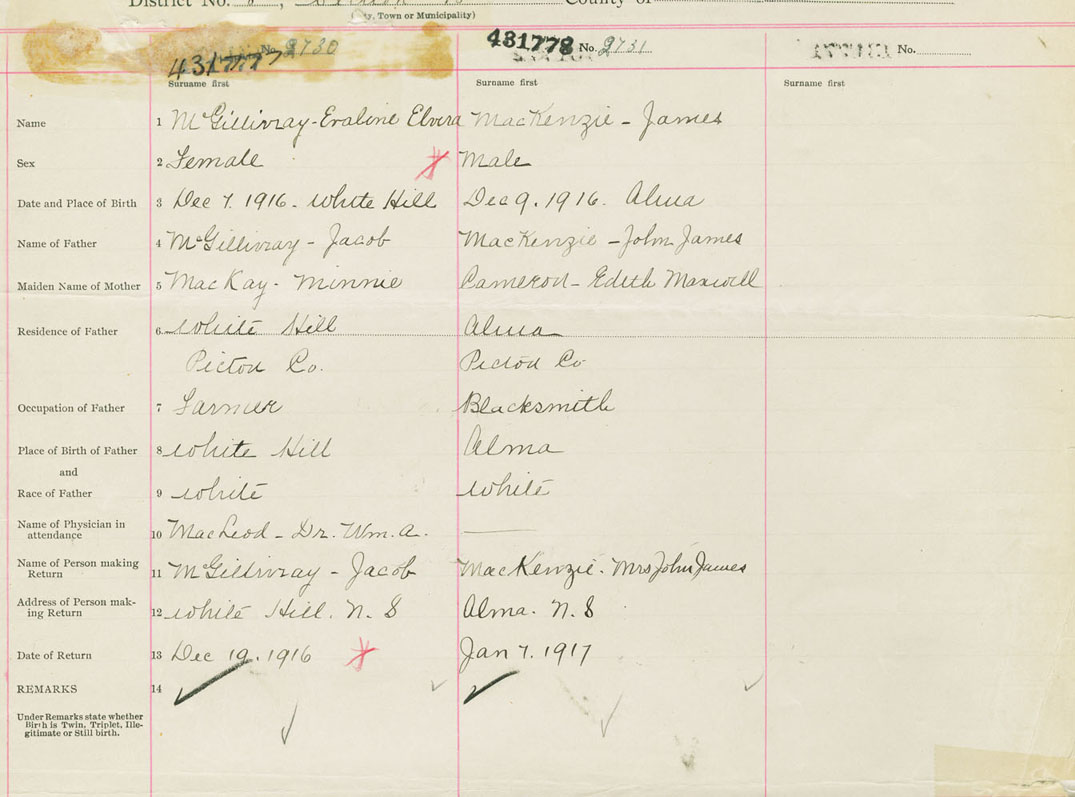 District No. County of
(City, Town or Municipality)
431777 No. 2730 431778 No. 2731 No.
Surname first Surname first Surname first
Name 1 McGillivray - Eraline Elvira MacKenzie - James
Sex 2 Female Male
Date and Place of Birth 3 Dec 7. 1916 - White Hill Dec 9. 1916. Alma
Name of Father 4 McGillivray - Jacob MacKenzie - John James
Maiden Name of Mother 5 MacKay - Minnie Cameron - Edith Maxwell
Residence of Father 6 White Hill Alma
Pictou Co. Pictou Co
Occupation of Father 7 Farmer Blacksmith
Place of Birth of Father 8 White Hill Alma
and
Race of Father 9 White White
Name of Physician in
attendance 10 MacLeod - Dr. Wm. A.
Name of Person making
Return 11 McGillivray - Jacob MacKenzie. Mrs John James
Address of Person mak-
ing Return 12 White Hill. N. S Alma. N. S
Date of Return 13 Dec 19. 1916 Jan 7. 1917
REMARKS 14
Under Remarks state whether
Birth is Twin, Triplet, Ille-
gitimate or Still birth.